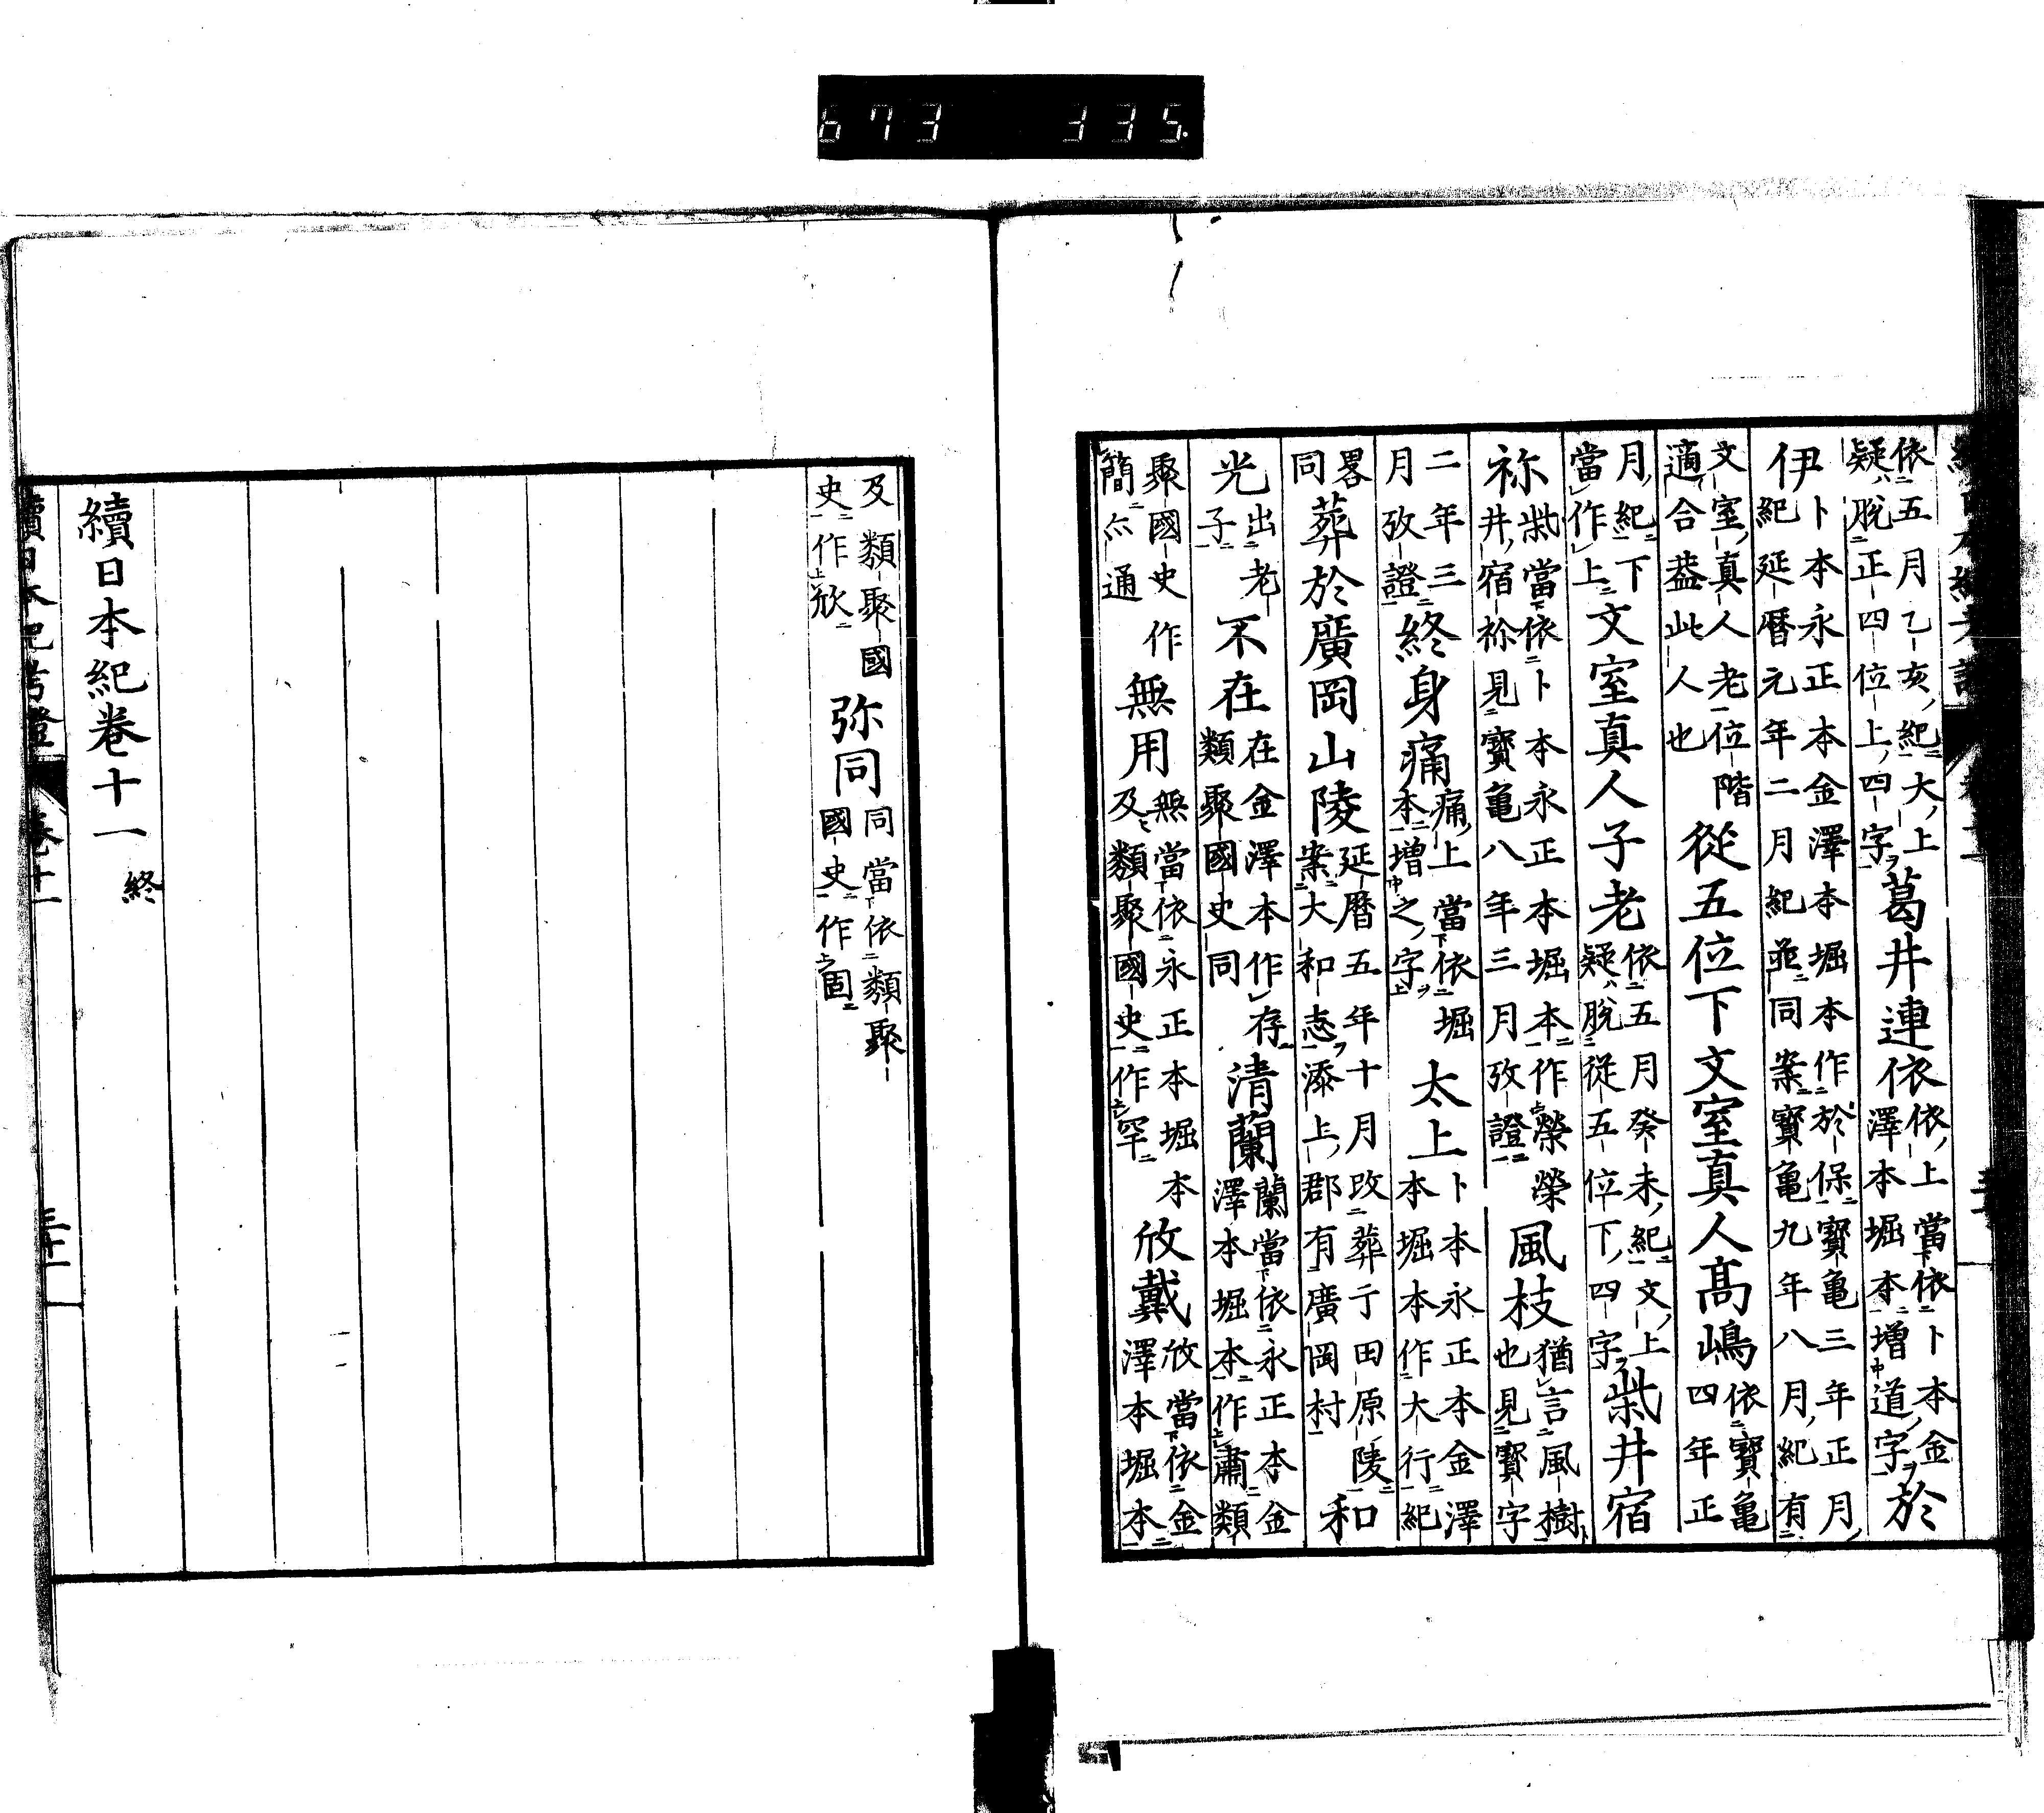 673 335.
依五月乙亥紀大上
疑脱正四位上四字
葛井連依
依上當依卜本金
澤本堀本増道字
於
伊
卜本永正本金澤本堀本作於保寶亀三年正月
紀延暦元年二月紀並同案寶亀九年八月紀有
文室真人老位階
適合葢此人也
從五位下文室真人髙嶋
依寶亀
四年正
月紀下
當作上
文室真人子老
依五月癸未紀文上
疑脱從五位下四字
柴井宿
祢
柴當依卜本永正本堀本作榮榮
井宿祢見寶亀八年三月攷證
風枝
猶言風樹
也見寶字
二年三
月攷證
終身痛
痛上當依堀
本増之字
太上
卜本永正本金澤
本堀本作大行紀
畧
同
葬於廣岡山陵
延暦五年十月改葬于田原陵
案大和志添上郡有廣岡村
和
光
出老
子
不在
在金澤本作存
類聚國史同
清蘭
蘭當依永正本金
澤本堀本作肅類
聚國史作
簡亦通
無用
無當依永正本堀本
及類聚國史作罕
攽戴
攽當依金
澤本堀本
及類聚國
史作欣
弥同
同當依類聚
國史作固
續日本紀卷十一
終
續日本紀考證
卷十一
三十一